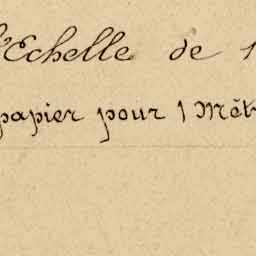 l'Echelle de 1
papier pour 1 Mèt